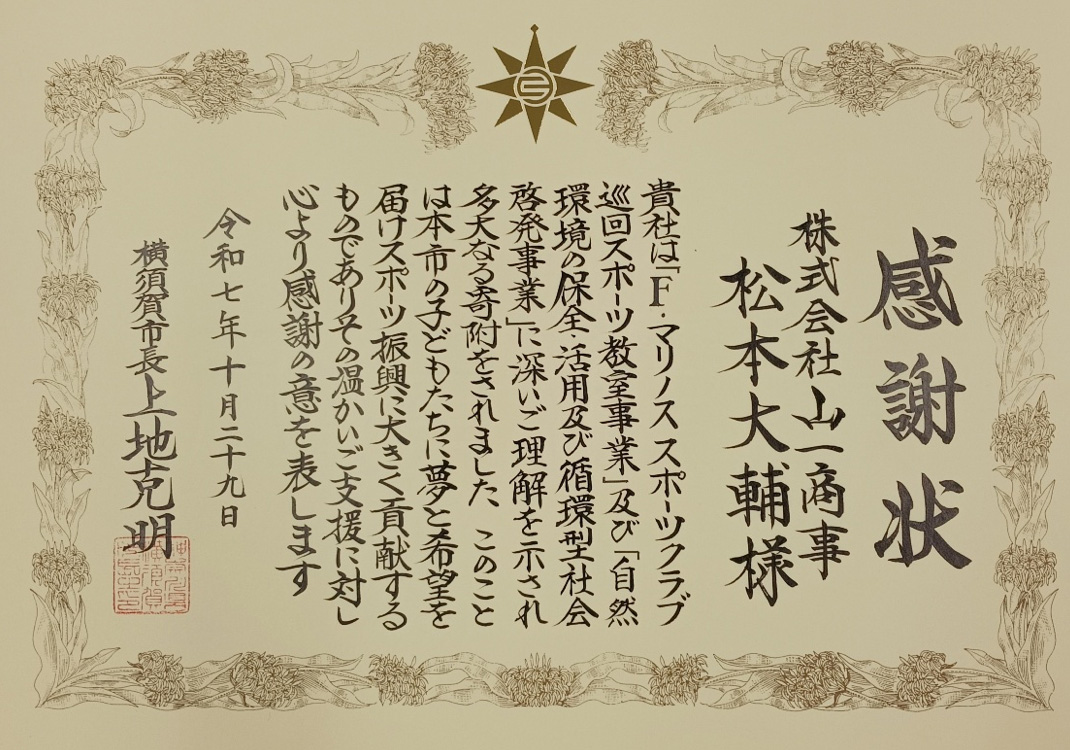 感謝状
株式会社山一商事
松本大輔様
貴社は「F・マリノススポーツクラブ
巡回スポーツ教室事業」及び「自然
環境の保全・活用及び循環型社会
啓発事業」に深いご理解を示され
多大なる寄附をされました このこと
は本市の子どもたちに夢と希望を
届けスポーツ振興に大きく貢献する
ものでありその温かいご支援に対し
心より感謝の意を表します
令和七年十月二十九日
横須賀市長上地克明